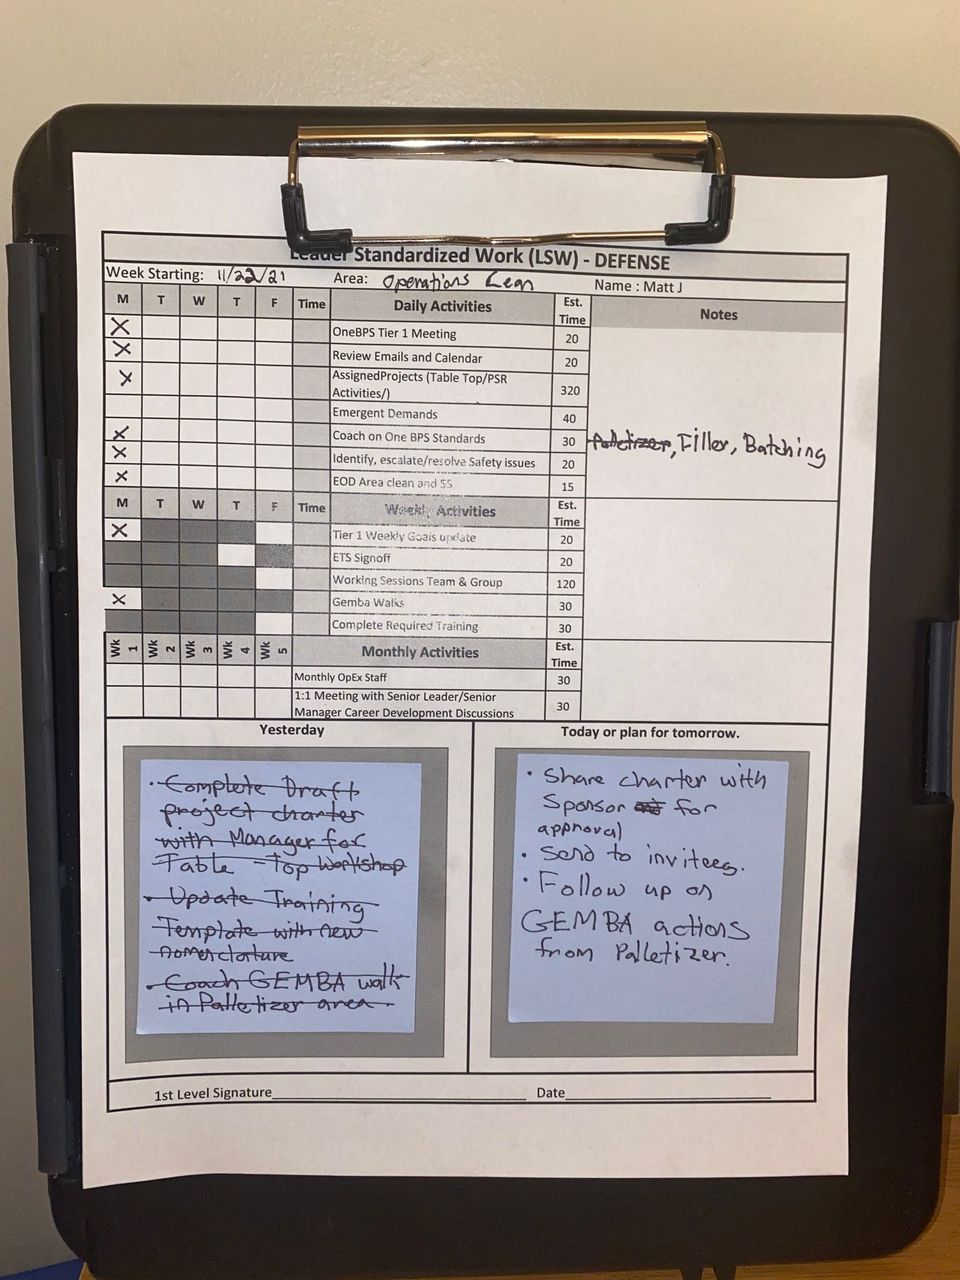 Leader Standardized Work (LSW) - DEFENSE
Week Starting: 11/22/21 Area: Operations Lean Name : Matt J
M T W T F Time Daily Activities Est. Time Notes
X OneBPS Tier 1 Meeting 20
X Review Emails and Calendar 20
X AssignedProjects (Table Top/PSR
Activities/) 320
Emergent Demands 40
X Coach on One BPS Standards 30 Palletizer, Filler, Batching
X Identify, escalate/resolve Safety issues 20
X EOD Area clean and 5S 15
M T W T F Time Weekly Activities Est. Time
X Tier 1 Weekly Goals update 20
ETS Signoff 20
Working Sessions Team & Group 120
X Gemba Walks 30
Complete Required Training 30
Wk 1 Wk 2 Wk 3 Wk 4 Wk 5 Monthly Activities Est. Time
Monthly OpEx Staff 30
1:1 Meeting with Senior Leader/Senior
Manager Career Development Discussions 30
Yesterday
· Complete Draft
project charter
with Manager for
Table - Top Workshop
· Update Training
Template with new
nomenclature
· Coach GEMBA walk
in Palletizer area.
Today or plan for tomorrow.
· Share charter with
Sponsor for
approval
· Send to invitees.
· Follow up on
GEMBA actions
from Palletizer.
1st Level Signature____ Date____